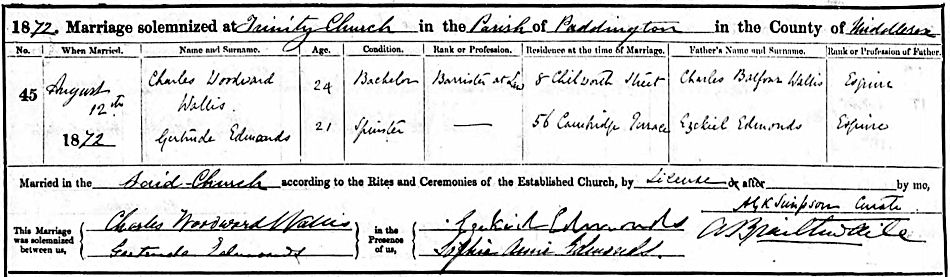 1872. Marriage solemnized at Trinity Church in the Parish of Paddington in the County of Middlesex
No. When Married. Name and Surname. Age. Condition. Rank or Profession. Residence at the time of Marriage. Father's Name and Surname. Rank or Profession of Father.
45 August 12th 1872
Charles Woodward Wallis. 24 Bachelor Barrister at Law 8 Chilworth Street Charles Balfour Wallis Esquire
Gertrude Edmonds 21 Spinster — 56 Cambridge Terrace Ezekiel Edmonds Esquire
Married in the Said Church according to the Rites and Ceremonies of the Established Church, by License or after by me,
Simpson Curate
This Marriage was solemnized between us, Charles Woodward Wallis in the Presence of us, Ezekiel Edmonds
Gertrude Edmonds Sophia Annie Edmonds. A Braithwaite